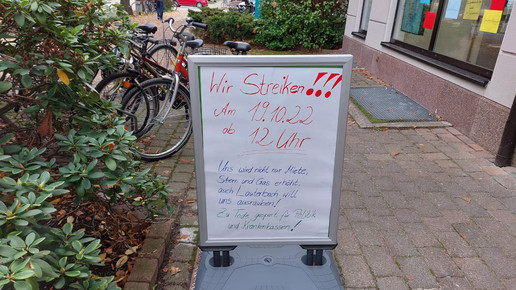 Wir Streiken!!!
Am 19.10.22
ab 12 Uhr
Uns wird nicht nur Miete,
Strom und Gas erhöht,
auch Lauterbach will
uns ausrauben!
Zu Tode gespart für Politik
und Krankenkassen!